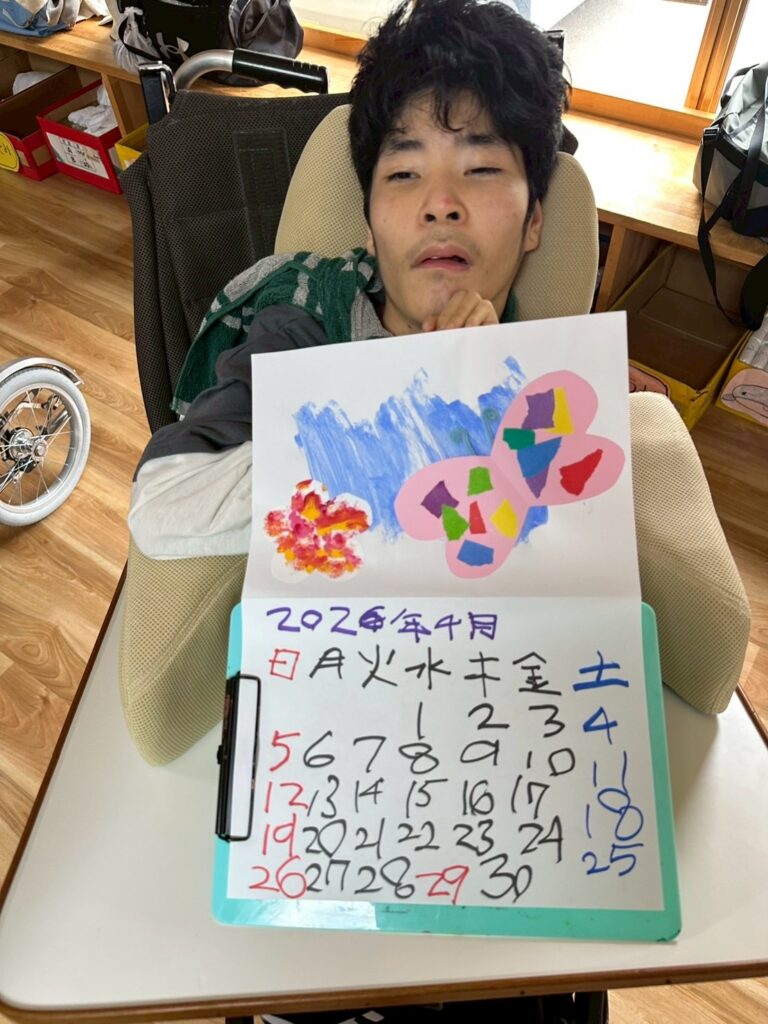 2026年4月
日月火水木金土
1 2 3 4
5 6 7 8 9 10 11
12 13 14 15 16 17 18
19 20 21 22 23 24 25
26 27 28 29 30